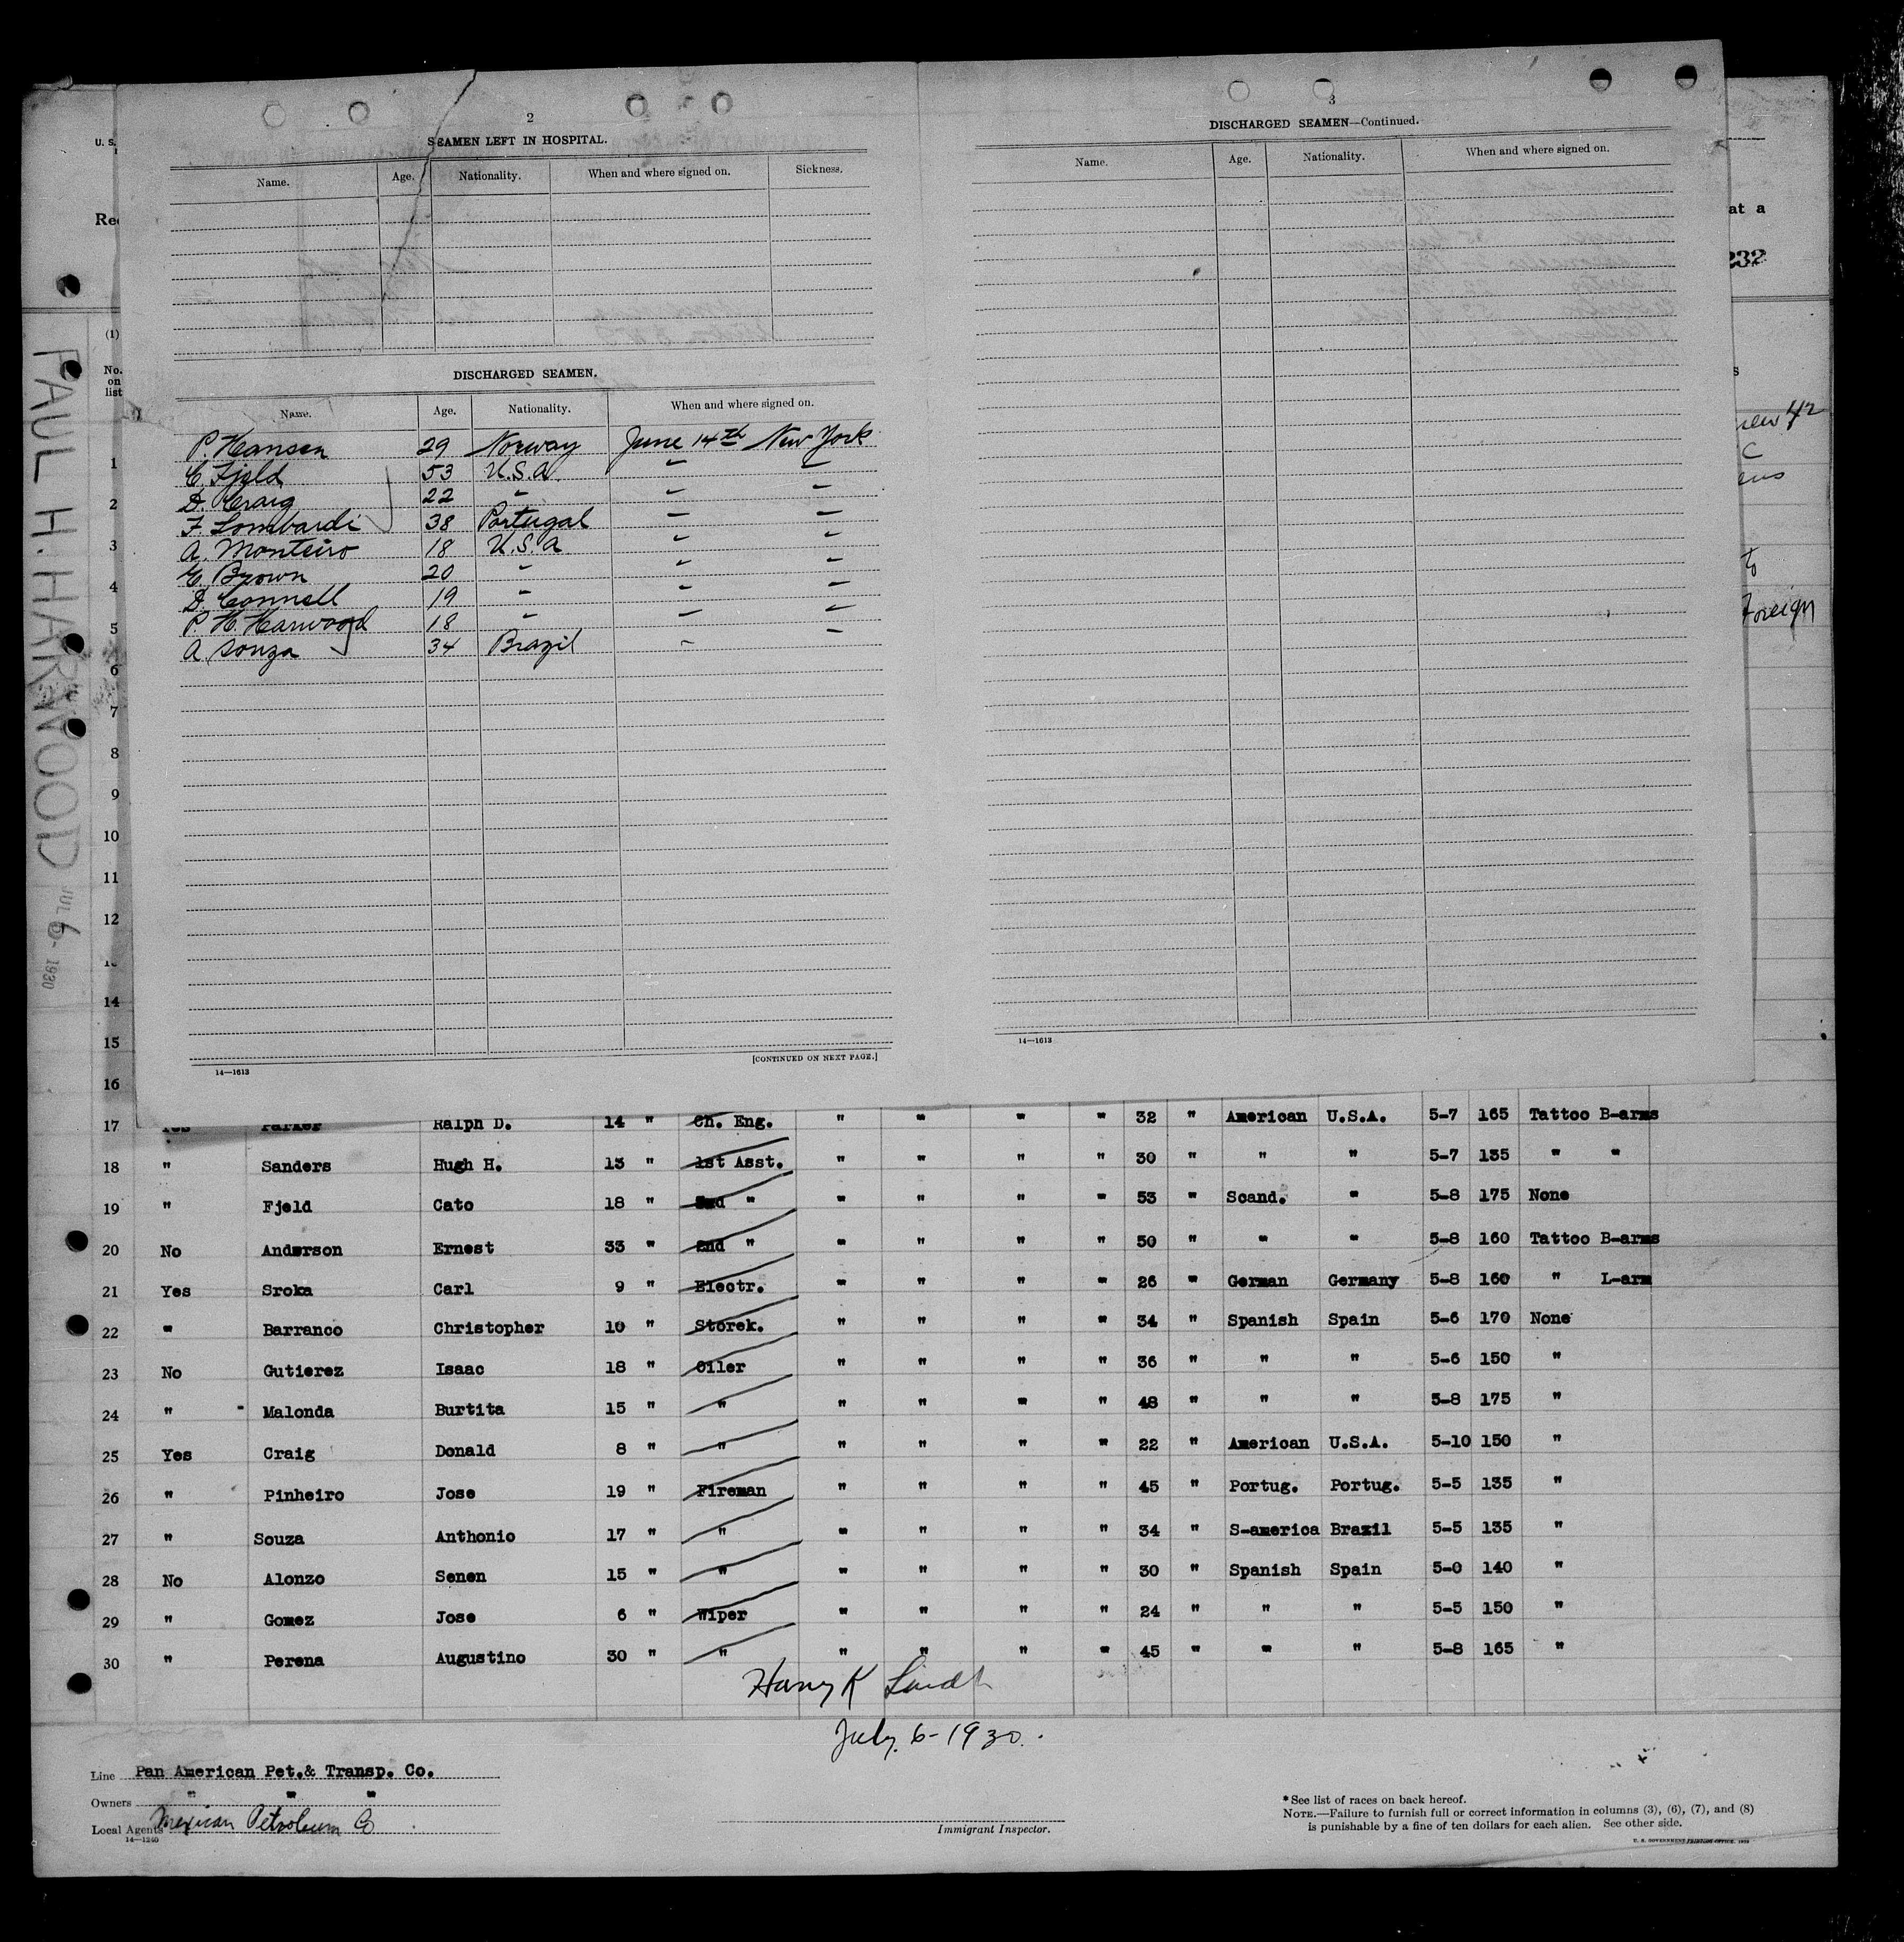 2
SEAMEN LEFT IN HOSPITAL.
Name. Age. Nationality. When and where signed on. Sickness.
DISCHARGED SEAMEN.
Name. Age. Nationality. When and where signed on.
P. Hansen 29 Norway June 14th New York
C. Fjeld 53 U.S.A. " "
D. Craig 22 " " "
F. Lombardi 38 Portugal " "
A. Monteiro 18 U.S.A " "
E. Brown 20 " " "
D. Connell 19 " " "
P. H. Harwood 18 " " "
A. Souza 34 Brazil " "
[CONTINUED ON NEXT PAGE.]
14—1613
3
DISCHARGED SEAMEN—Continued.
Name. Age. Nationality. When and where signed on.
14—1613
U. S.
(1)
No.
on
list
1
2
3
4
5
6
7
8
9
10
11
12
14
15
16
PAUL H. HARWOOD
JUL 6 - 1930
at a
232
42
C
Foreign
17 Yes Parker Ralph D. 14 " Ch. Eng. " " " " 32 " American U.S.A. 5-7 165 Tattoo B-arms
18 " Sanders Hugh H. 13 " 1st Asst. " " " " 30 " " " 5-7 135 " "
19 " Fjeld Cato 18 " 2nd " " " " " 53 " Scand. " 5-8 175 None
20 No Anderson Ernest 33 " 2nd " " " " " 50 " " " 5-8 160 Tattoo B-arms
21 Yes Sroka Carl 9 " Electr. " " " " 26 " German Germany 5-8 160 " L-arm
22 " Barranco Christopher 10 " Storek. " " " " 34 " Spanish Spain 5-6 170 None
23 No Gutierez Isaac 18 " Oiler " " " " 36 " " " 5-6 150 "
24 " Malonda Burtita 15 " " " " " " 48 " " " 5-8 175 "
25 Yes Craig Donald 8 " " " " " " 22 " American U.S.A. 5-10 150 "
26 " Pinheiro Jose 19 " Fireman " " " " 45 " Portug. Portug. 5-5 135 "
27 " Souza Anthonio 17 " " " " " " 34 " S-america Brazil 5-5 135 "
28 No Alonzo Senen 15 " " " " " " 30 " Spanish Spain 5-0 140 "
29 " Gomez Jose 6 " Wiper " " " " 24 " " " 5-5 150 "
30 " Perena Augustino 30 " " " " " " 45 " " " 5-8 165 "
Harry K
July 6-1930.
Line Pan American Pet.& Transp. Co.
Owners " " "
Local Agents Mexican Petroleum Co
14—1240
Immigrant Inspector.
*See list of races on back hereof.
NOTE.—Failure to furnish full or correct information in columns (3), (6), (7), and (8)
is punishable by a fine of ten dollars for each alien. See other side.
U. S. GOVERNMENT PRINTING OFFICE